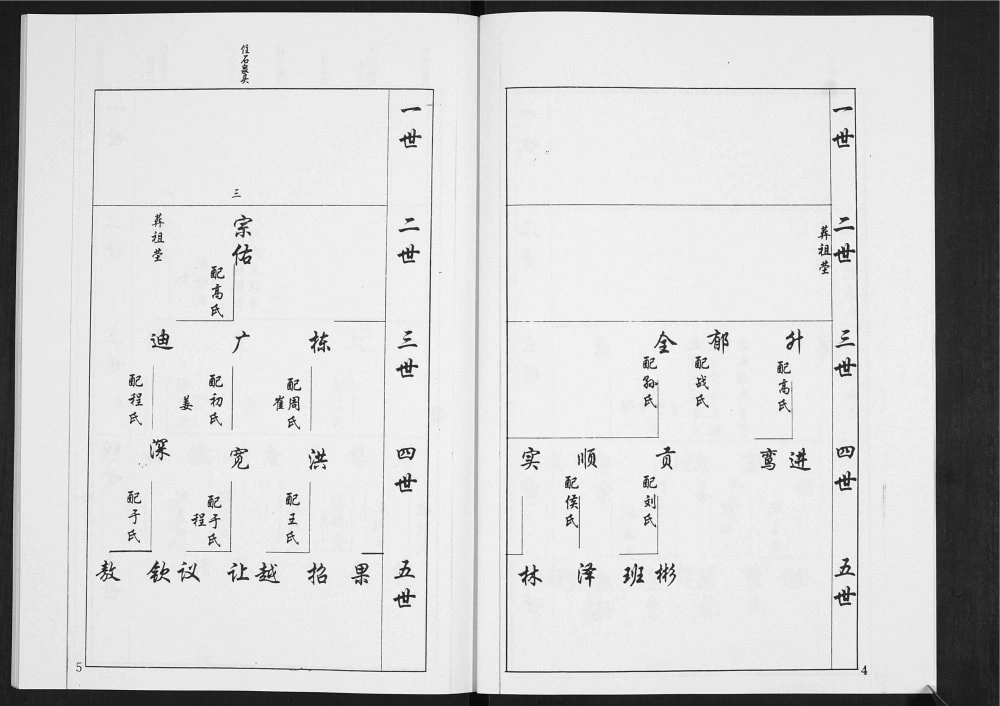 一世
二世
葬祖茔
三世
升
配高氏
郁
配战氏
全
配孙氏
四世
进
鸾
贡
配刘氏
顺
配侯氏
实
五世
彬
班
泽
林
4
一世
住石泉头
二世
三
宗佑
配高氏
葬祖茔
三世
栋
配周氏
崔
广
配初氏
姜
迪
配程氏
四世
洪
配王氏
宽
配于氏
程
深
配于氏
五世
果
招
越
让
议
钦
敖
5